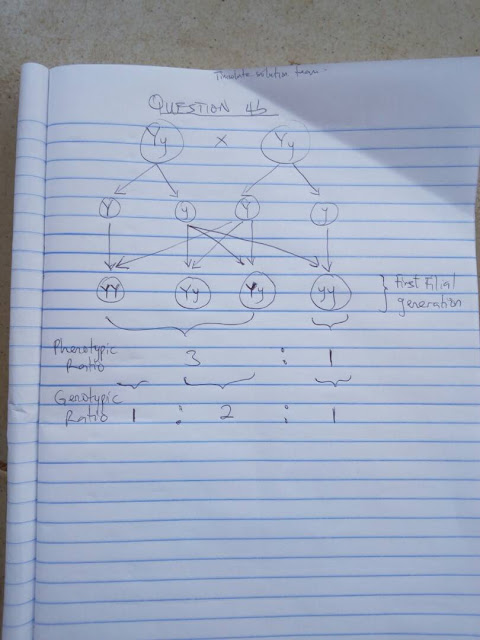 solution
QUESTION 4b
Yy x Yy
Y y Y y
YY Yy Yy yy } First Filial
generation
Phenotypic
Ratio 3 : 1
Genotypic
Ratio 1 : 2 : 1